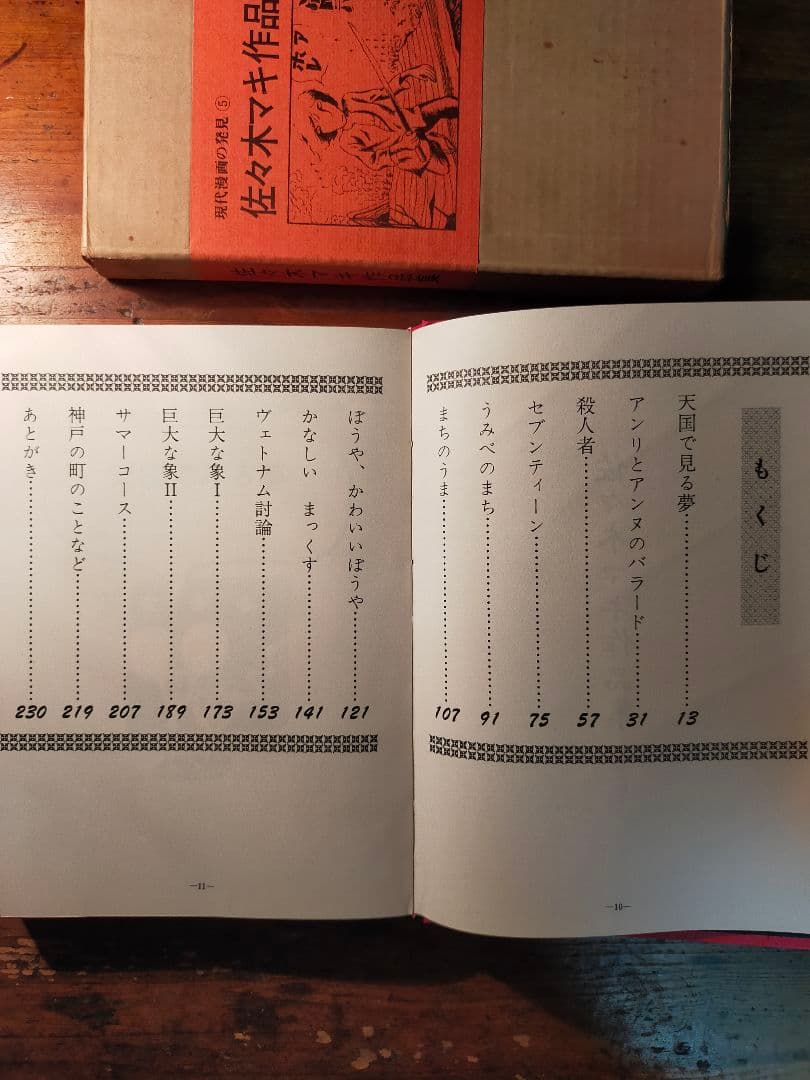 現代漫画の発見⑤
佐々木マキ作品
ホア
佐々木マキ作品集
もくじ
天国で見る夢……13
アンリとアンヌのバラード……31
殺人者……57
セブンティーン……75
うみべのまち……91
まちのうま……107
—10—
ぼうや、かわいいぼうや……121
かなしい まっくす……141
ヴェトナム討論……153
巨大な象I……173
巨大な象II……189
サマーコース……207
神戸の町のことなど……219
あとがき……230
—11—